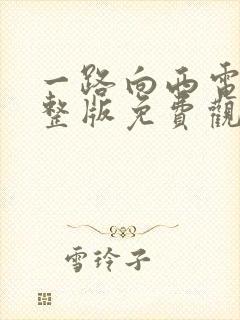 一路向西電
整版免費觀
雪玲子